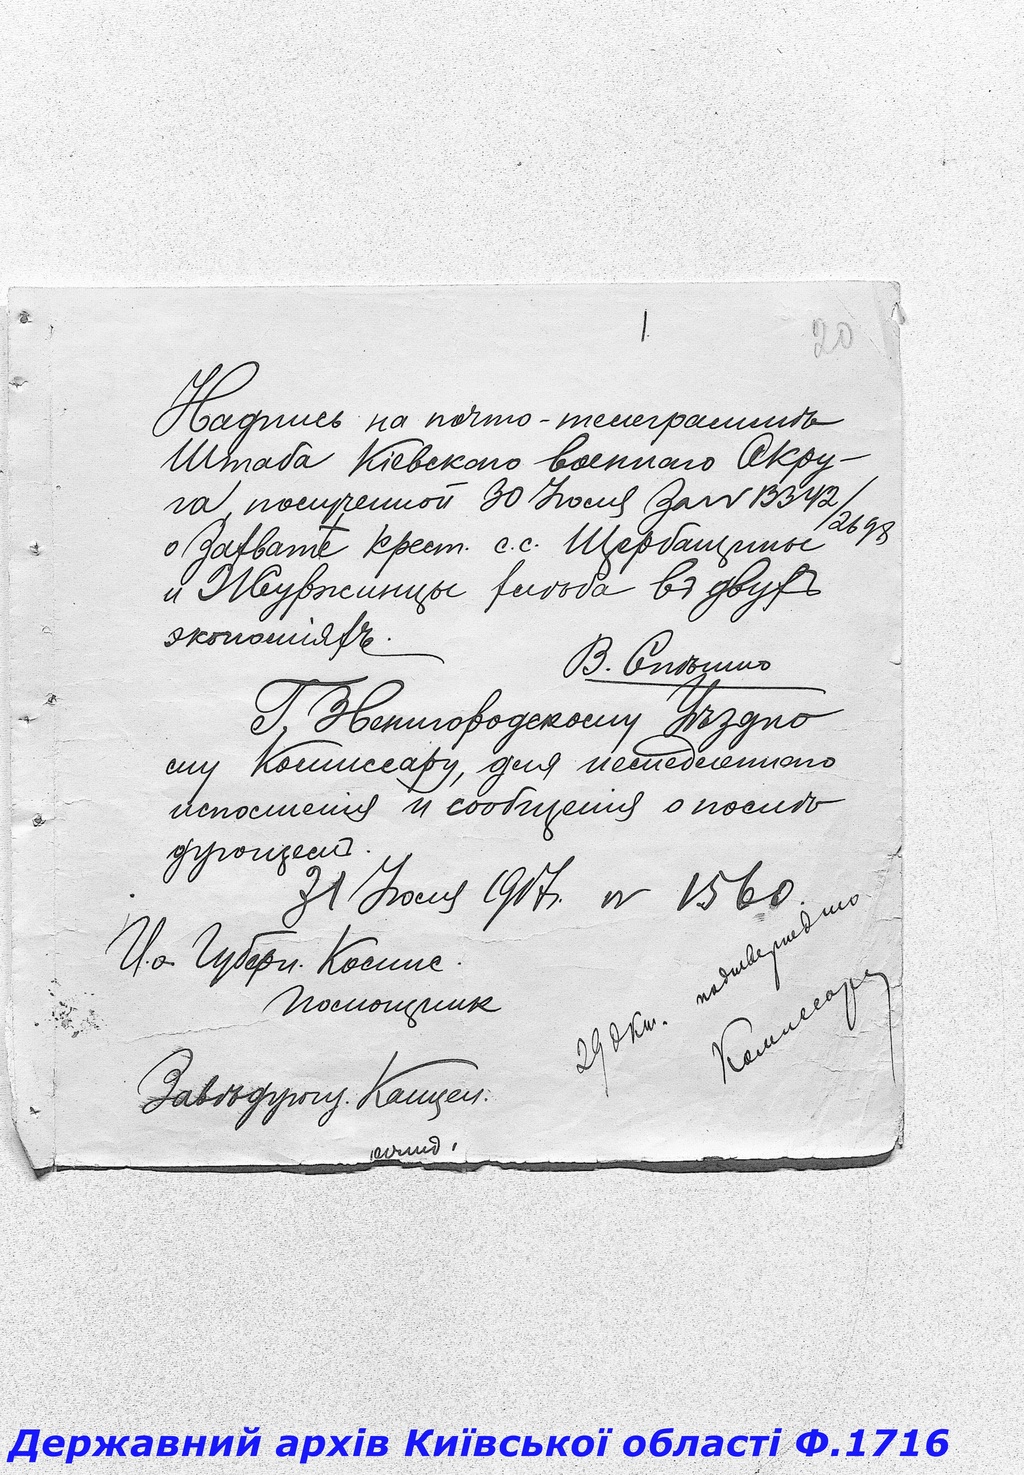 1.
20
Надпись на почто-телеграммѣ
Штаба Кіевскаго военнаго Окру-
га, полученной 30 Іюля за № 13342/2698
о Захватѣ крест. с.с. Щербащинцы
и Журжинцы хлѣба въ двухъ
экономіяхъ.
В. Спѣшно
Г. Звенигородскому Уѣздно
му Комиссару, для немедленнаго
исполненія и сообщенія о послѣ
дующемъ.
31 Іюля 1917г. № 1560.
И.о. Губерн. Комис.
Помощник
29 окт. подтверждено
Комиссару
Завѣдующ. Канцел.
Державний архів Київської області Ф.1716